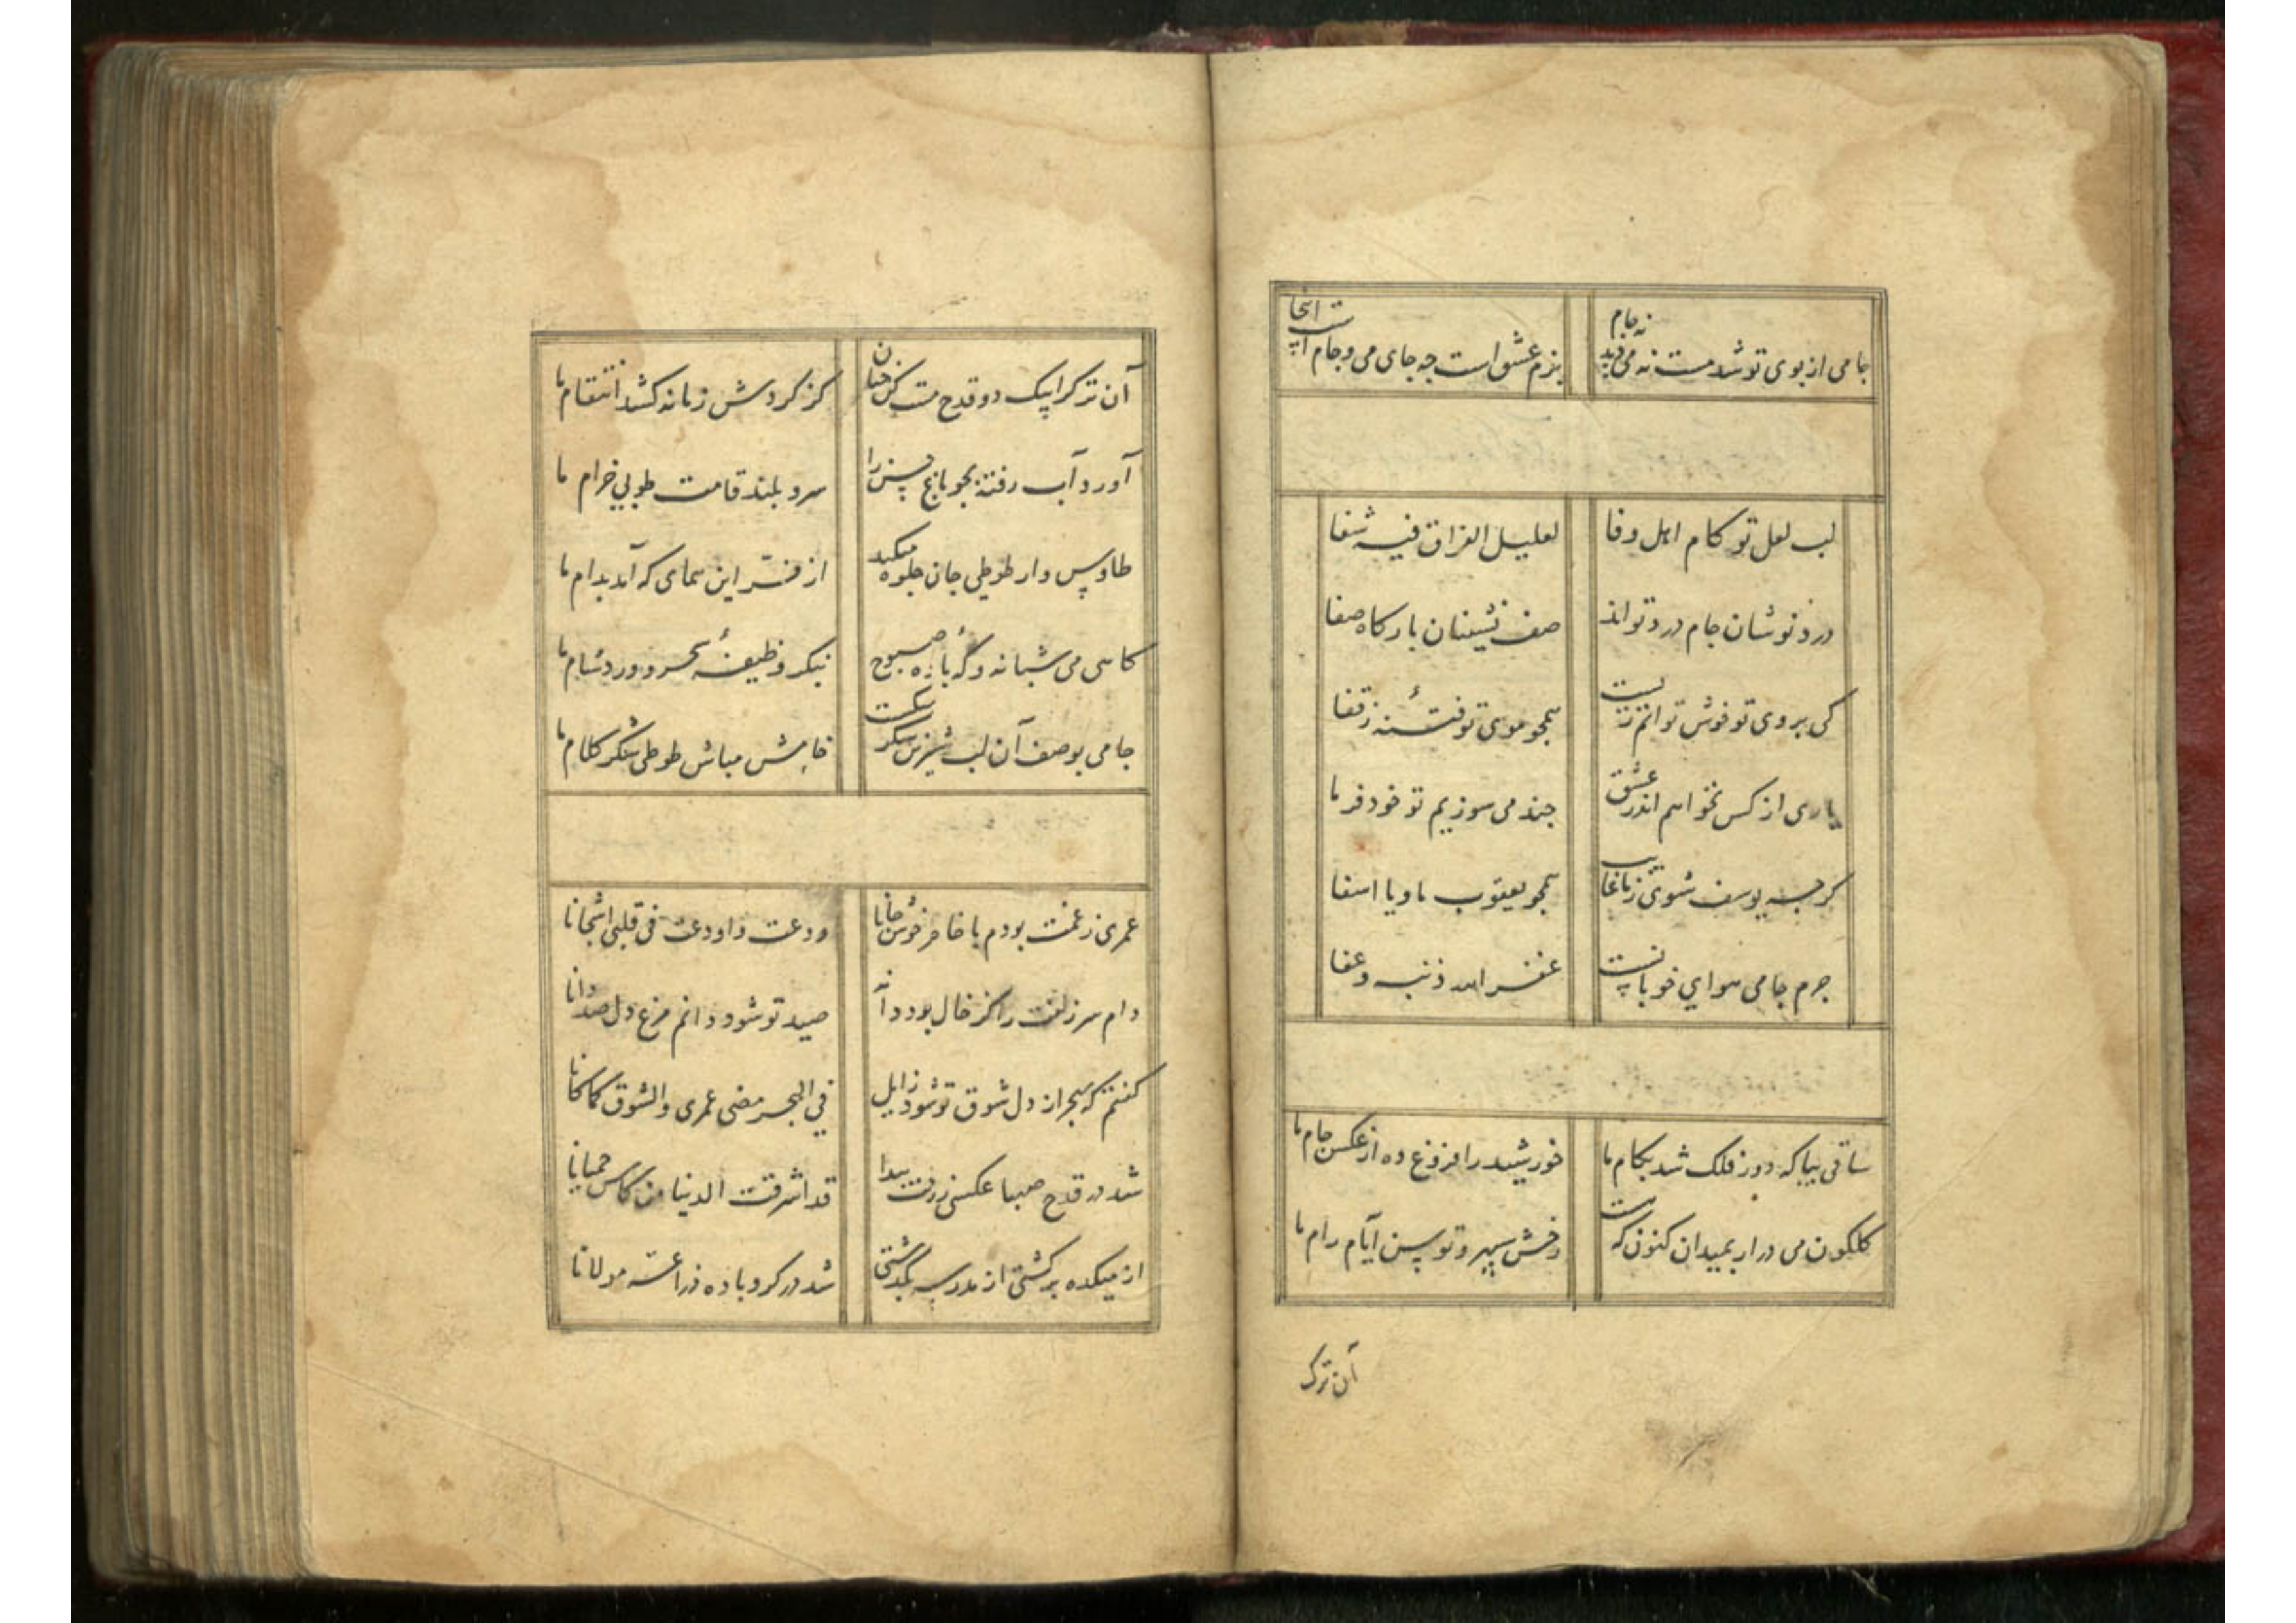 جامی از بوی تو شد مست نه می دید نه جام
بزم عشق است چه جای می و جام است اینجا
لب لعل تو کام اهل وفا
لعلیل الفراق فیه شفا
درد نوشان جام درد تواند
صف نشینان بارکاه صفا
کی بروی تو خوش توانم زیست
همچو موی تو فتنهٔ ز قفا
یاری از کس نخواهم اندر عشق
چند می سوزیم تو خود فرما
کرچه یوسف شوی ز ما غایب
همچو یعقوب ما و یا اسفا
جرم جامی هوای خوبانست
غفر الله ذنبه و عفا
ساقی بیا که دور فلک شد بکام ما
خورشید را فروغ ده از عکس جام ما
کلکون می درار بمیدان کنون که هست
رخش سپهر و توسن ایّام رام ما
آن ترک
آن ترک را بیک دو قدح مست کن چنان
کز کردش زمانه کشد انتقام ما
آورد آب رفته بجو باغ حسن را
سرو بلند قامت طوبی خرام ما
طاوس وار طوطی جان جلوه میکند
از فرّ این همای که آمد بدام ما
کاهی می شبانه و که بادهٔ صبوح
بنکر وظیفهٔ سحر و ورد شام ما
جامی بوصف آن لب شیرین شکر شکست
خامش مباش طوطی شکر کلام ما
عمری ز غمت بودم با خاطر خوش جانا
ودعت و اودعت فی قلبی اشجانا
دام سر زلفت را کز خال بود دانه
صید تو شود دانم مرغ دل صد دانا
کفتم که بهجر از دل شوق تو شود زایل
فی الهجر مضی عمری والشوق کما کانا
شد در قدح صهبا عکسی ز رخت پیدا
قد اشرقت الدنیا من کاس حمیانا
از میکده برکشتی از مدرسه بکذشتی
شد در کرو باده درّاعهٔ مولانا